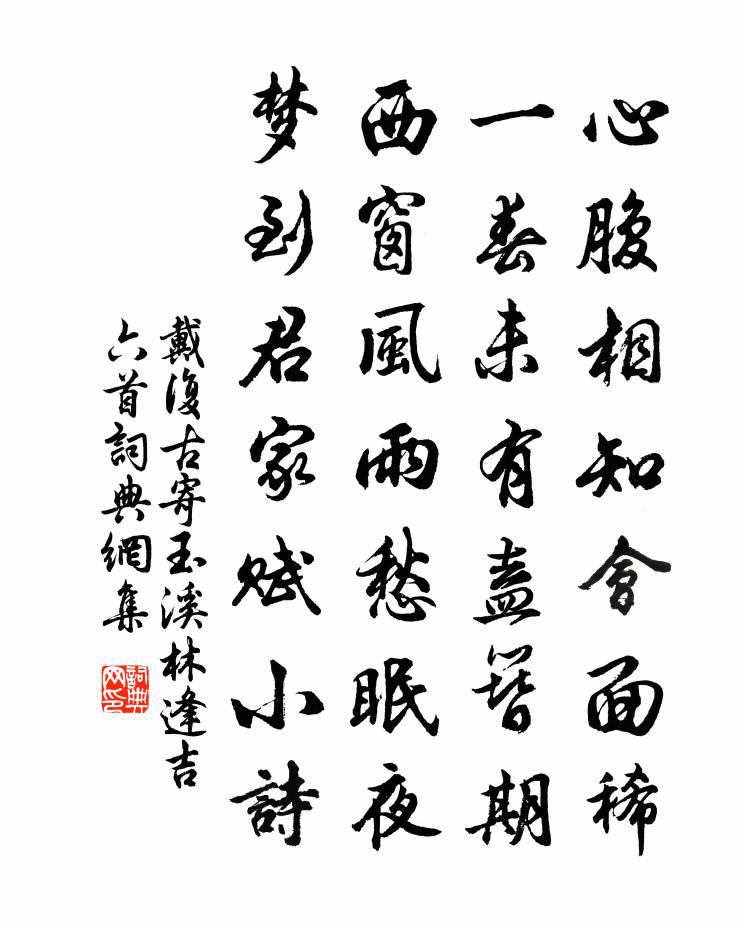 心腹相知會面稀
一春未有盍簪期
西窗風雨愁眠夜
梦到君家赋小詩
戴復古寄玉溪林逢吉
六首詞典網集
詞典網印